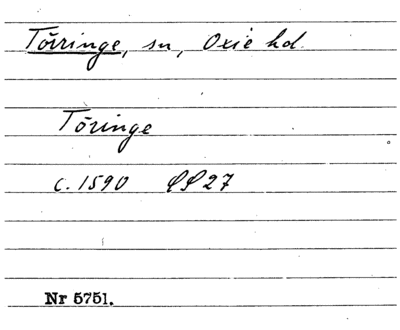 Törringe, sn, Oxie hd.
Töringe
c. 1590 LP 27
Nr 5751.